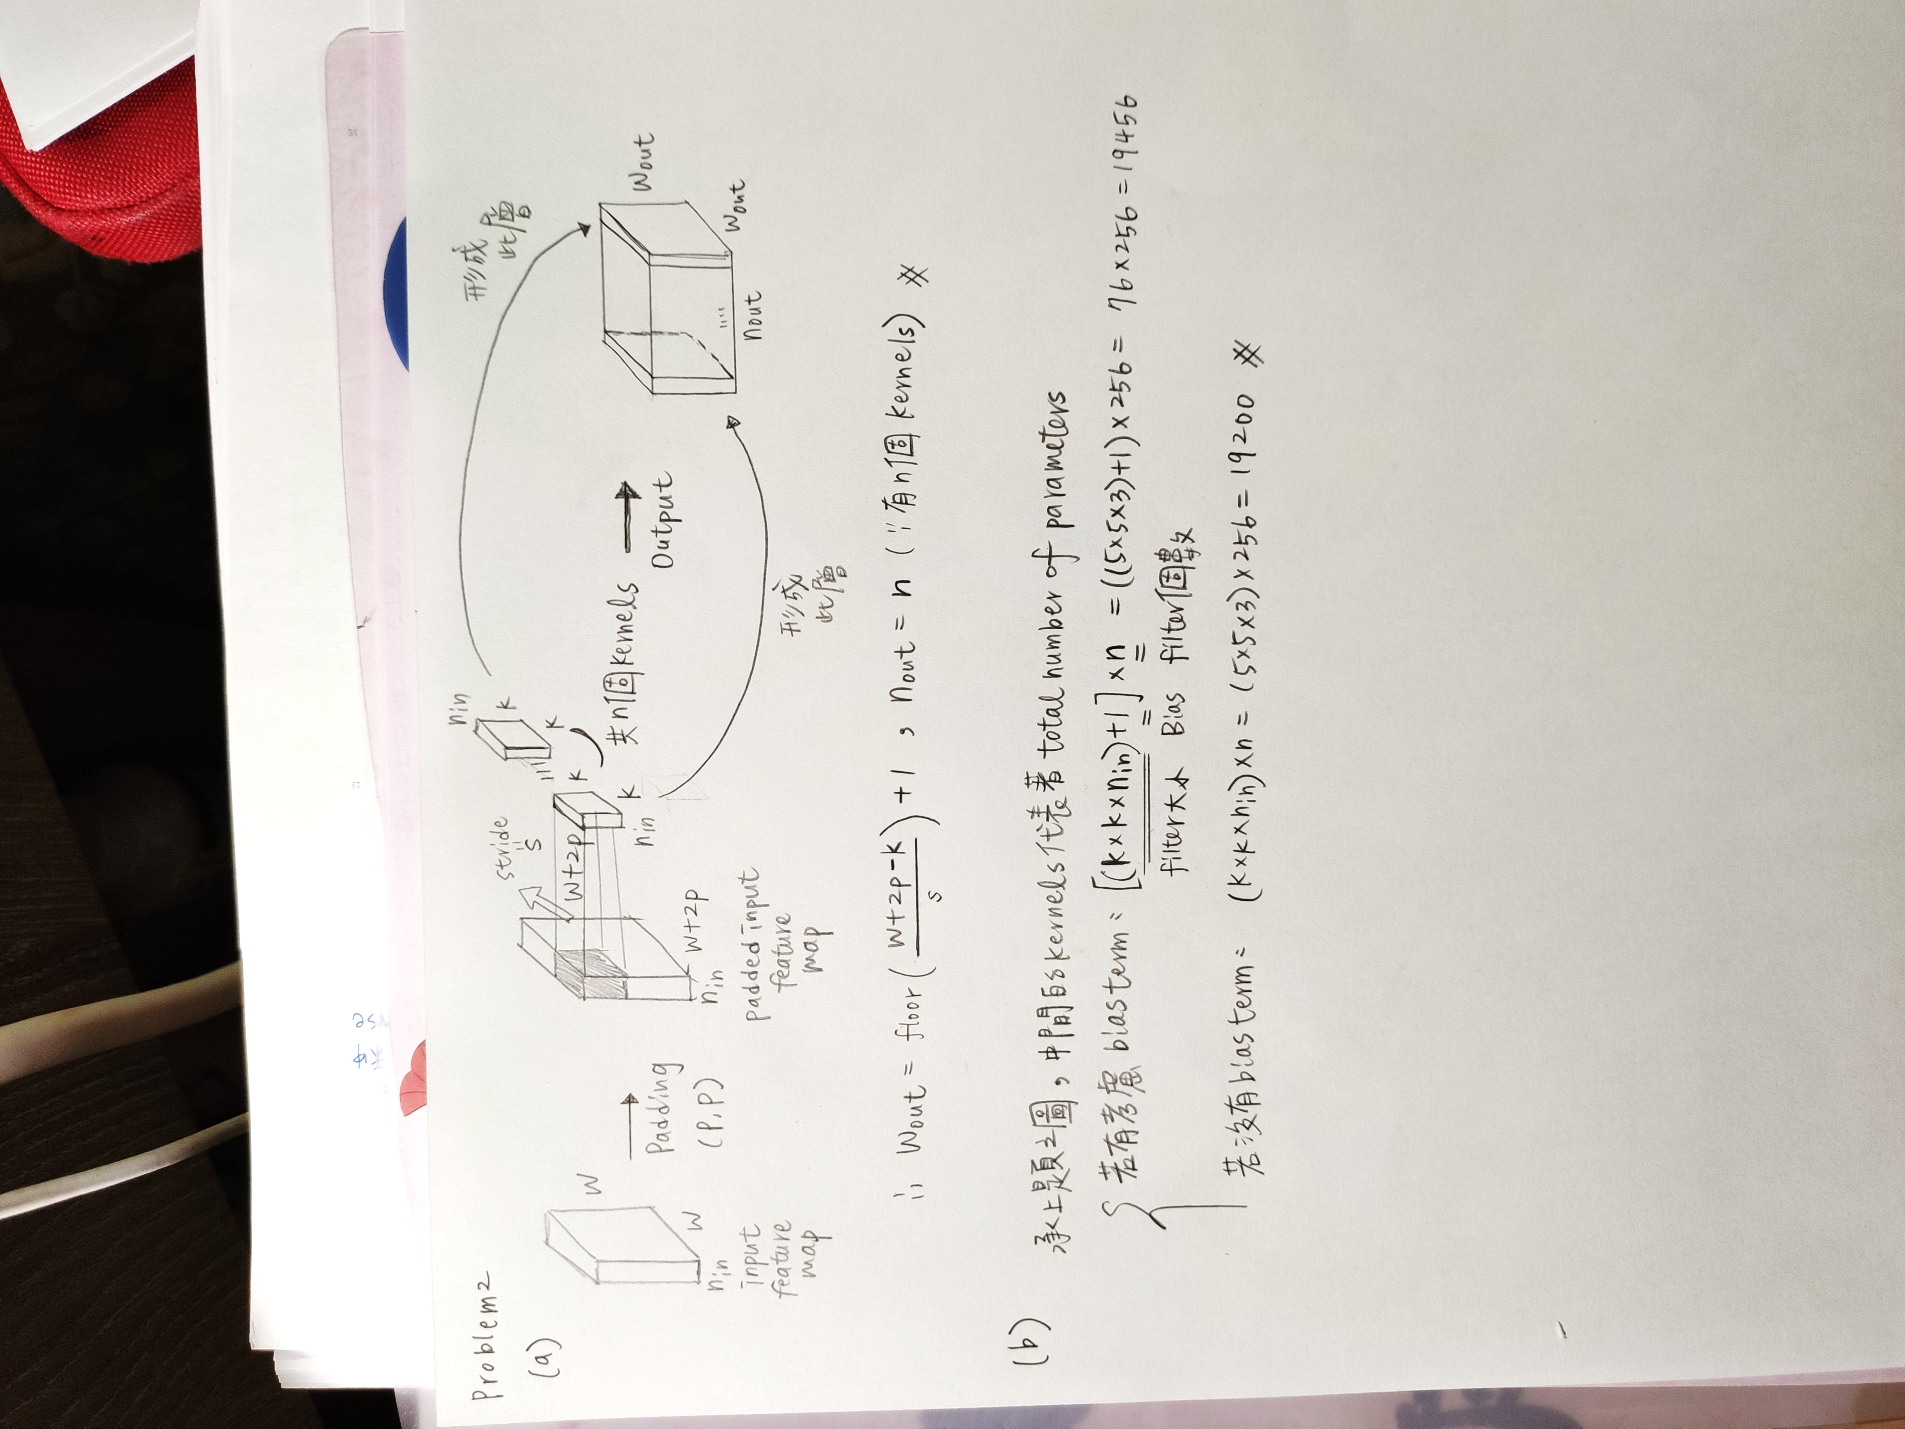 Problem 2
(a)
W
W
nin
input
feature
map
Padding
(P,P)
stride
s
W+2p
W+2p
nin
padded input
feature
map
nin
k
k
nin
k
k
共n個kernels
Output
形成
此層
形成
此層
Wout
Wout
nout
∴ Wout = floor( (W+2p-k)/s ) + 1 , nout = n (∵有n個kernels) ※
(b)
承上題之圖,中間的kernels代表著total number of parameters
若有考慮 bias term: [(k×k×nin)+1]×n = ((5×5×3)+1)×256 = 76×256 = 19456
filter大小 Bias filter個數
若沒有bias term: (k×k×nin)×n = (5×5×3)×256 = 19200 ※